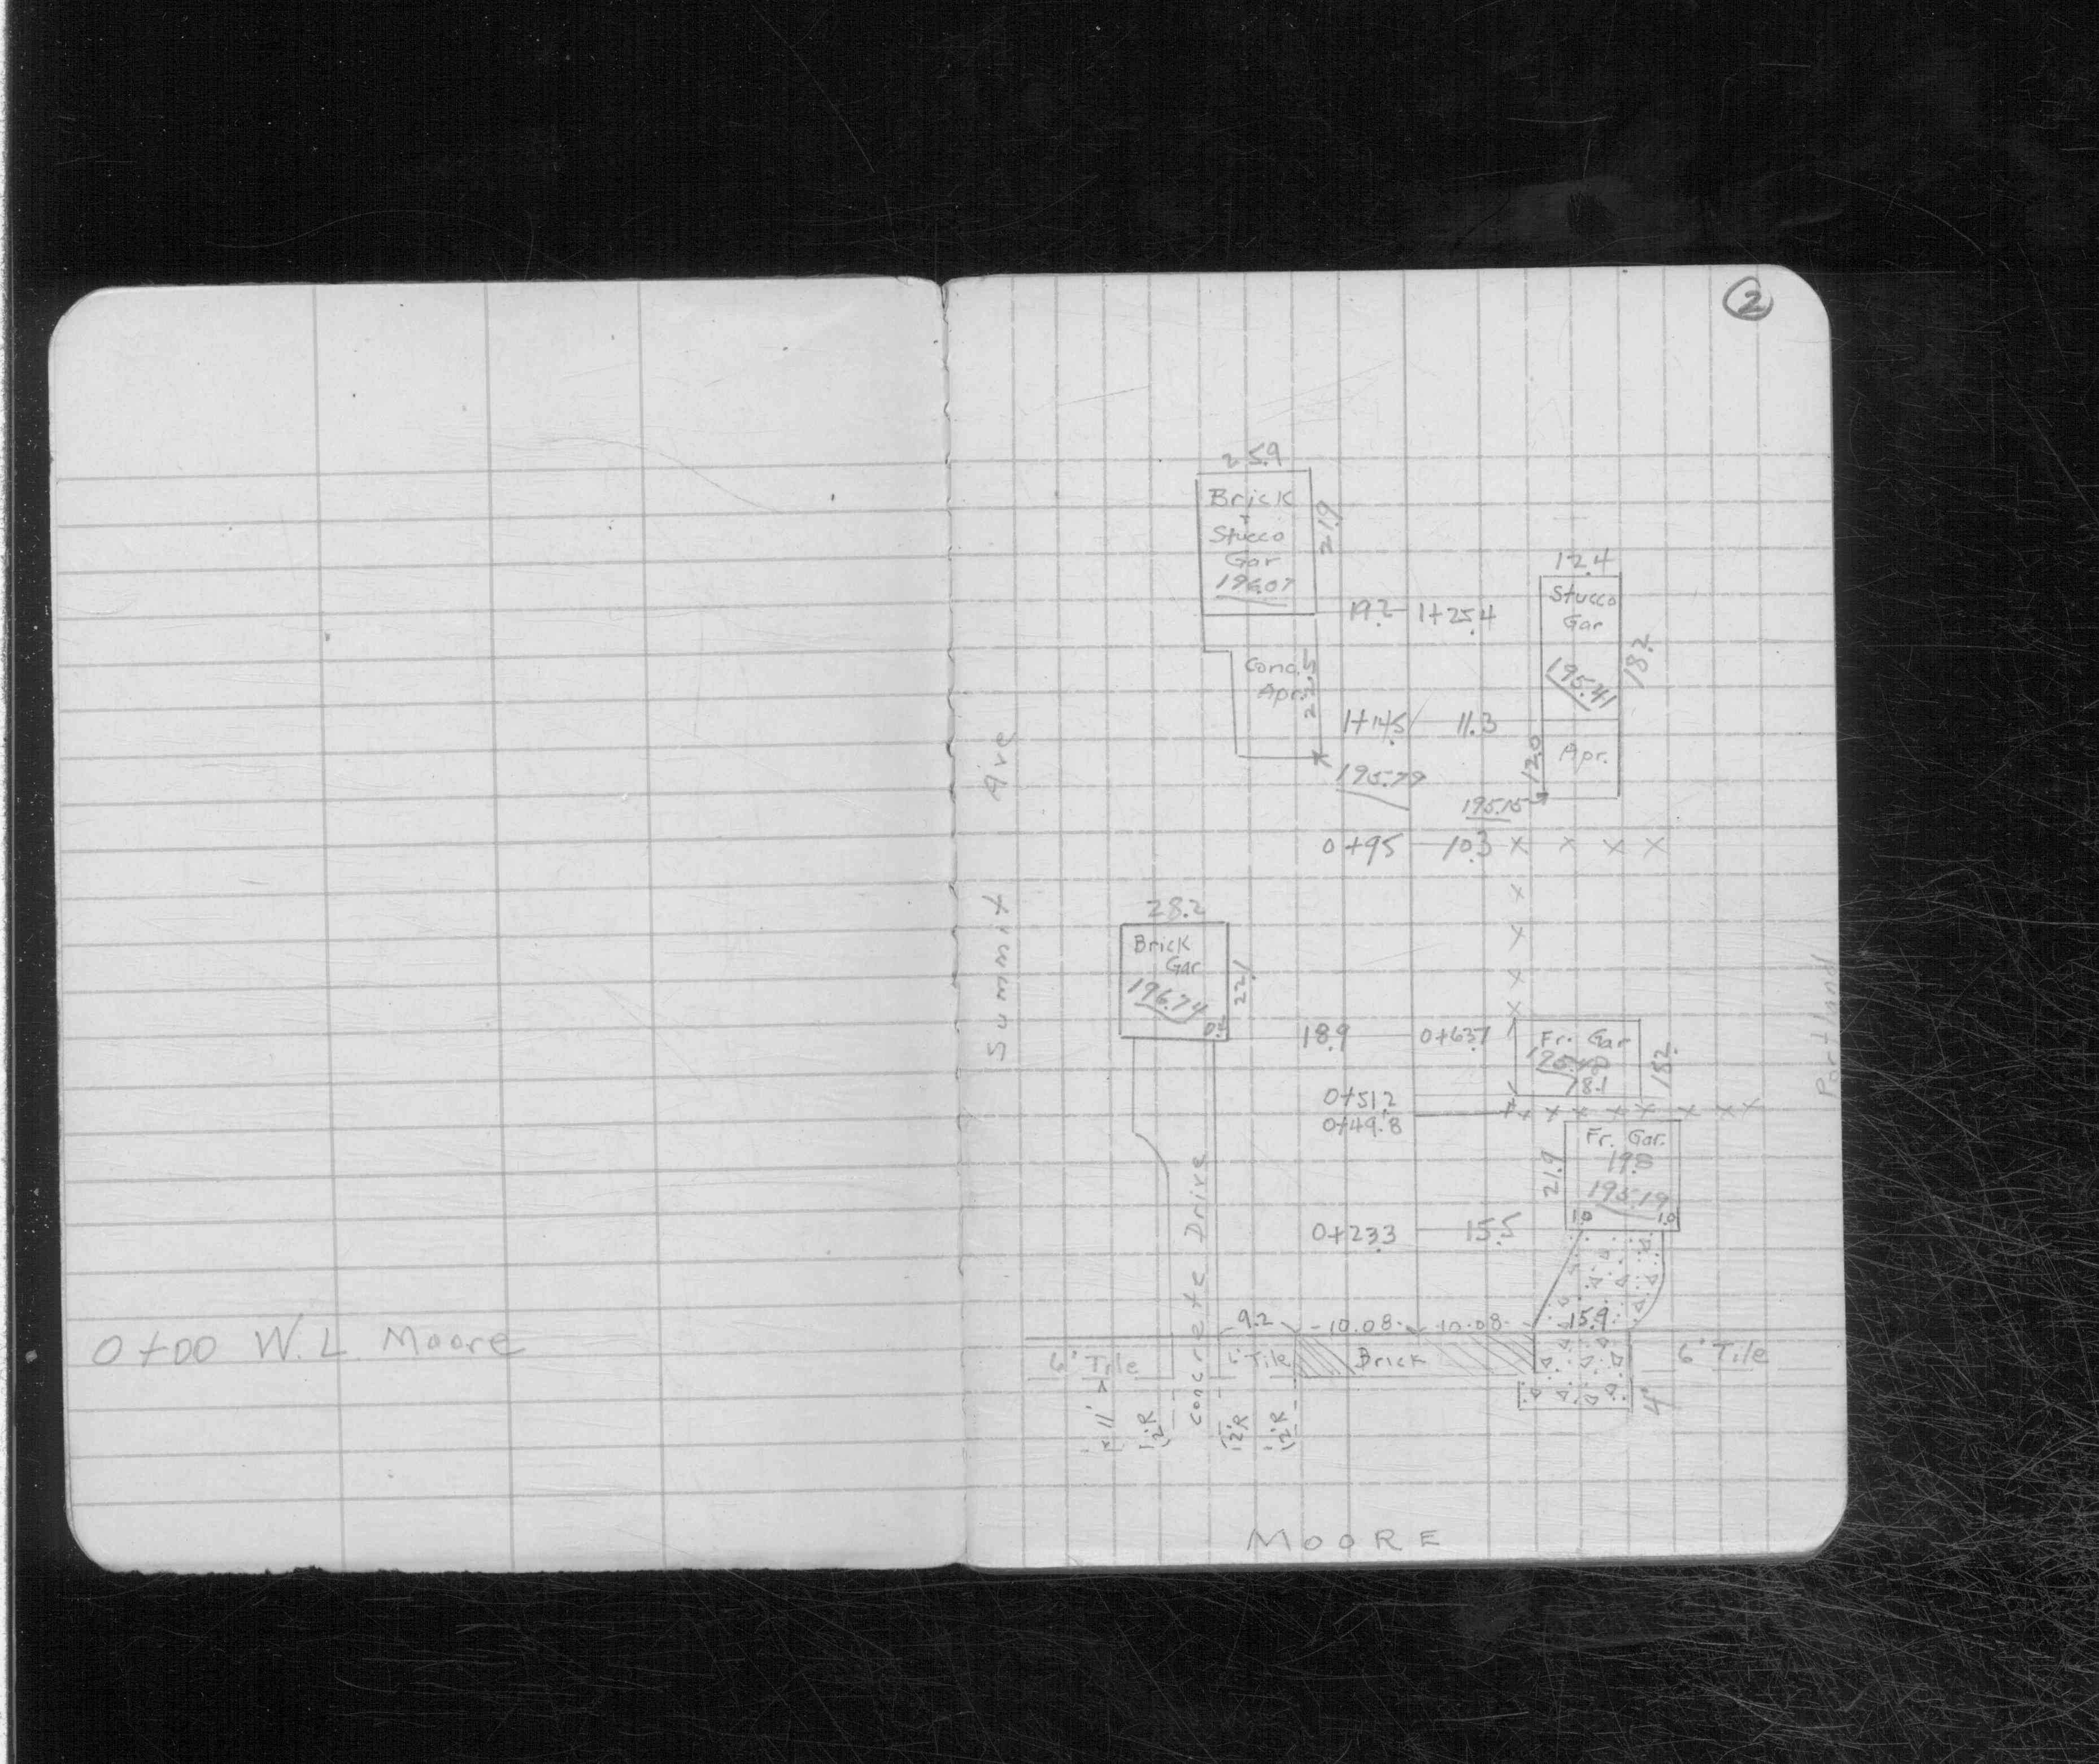 2
25.9
Brick
+
Stucco
Gar
196.07
21.9
12.4
Stucco
Gar
195.41
18.2
19.2 1+25.4
Conc.
Apr.
22.5
1+14.5 11.3
Apr.
12.0
195.79
195.15
0+95 10.3 x x x x
x
x
x
x
28.2
Brick
Gar
196.74
22.1
18.9 0+63.7
Fr. Gar
18.1
18.2
0+51.2
0+49.8
x x x x x x x
Fr. Gar.
19.8
195.19
1.0 1.0
21.9
0+23.3 15.5
Summit Ave
Portland
Concrete Drive
9.2 10.08 10.08 15.9
0+00 W.L. Moore
6' Tile 6' Tile Brick 6' Tile
4'
11' 12'R 12'R 12'R
MOORE